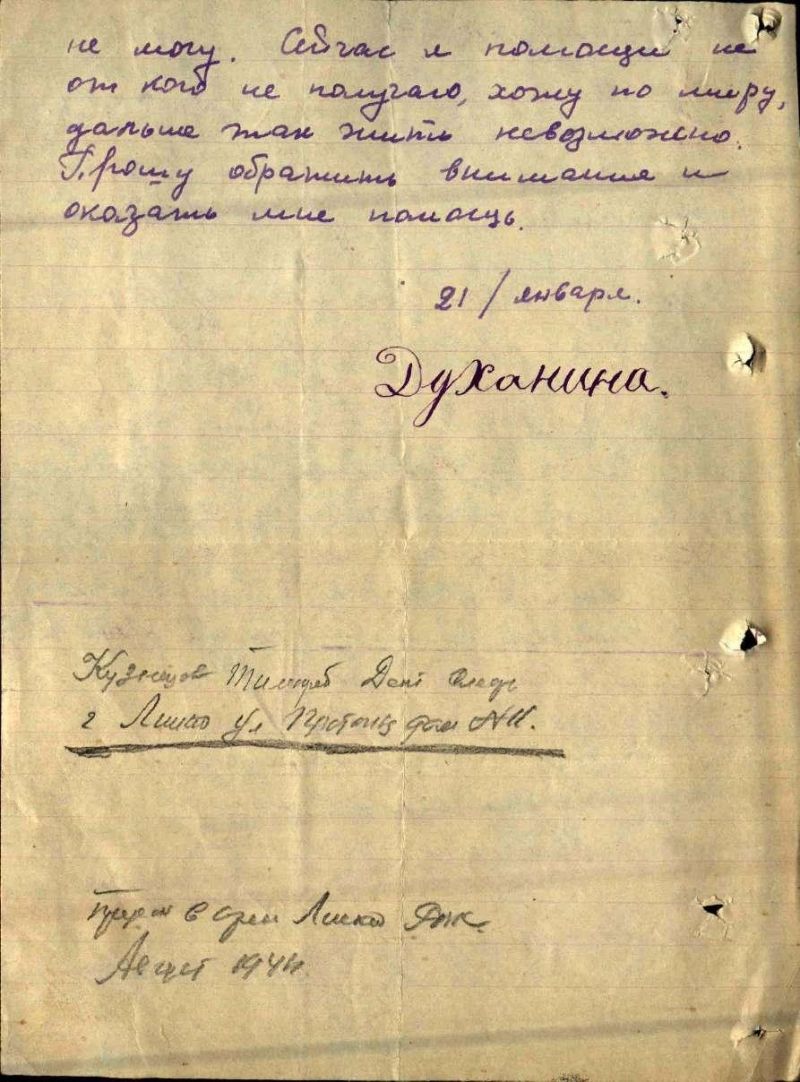 не могу. Сейчас я помощи не
от кого не получаю, хожу по миру,
дальше так жить невозможно.
Прошу обратить внимания и
оказать мне помощь.
21/января.
Духанина.
Кузнецов
г ул дом
в
Август 1944